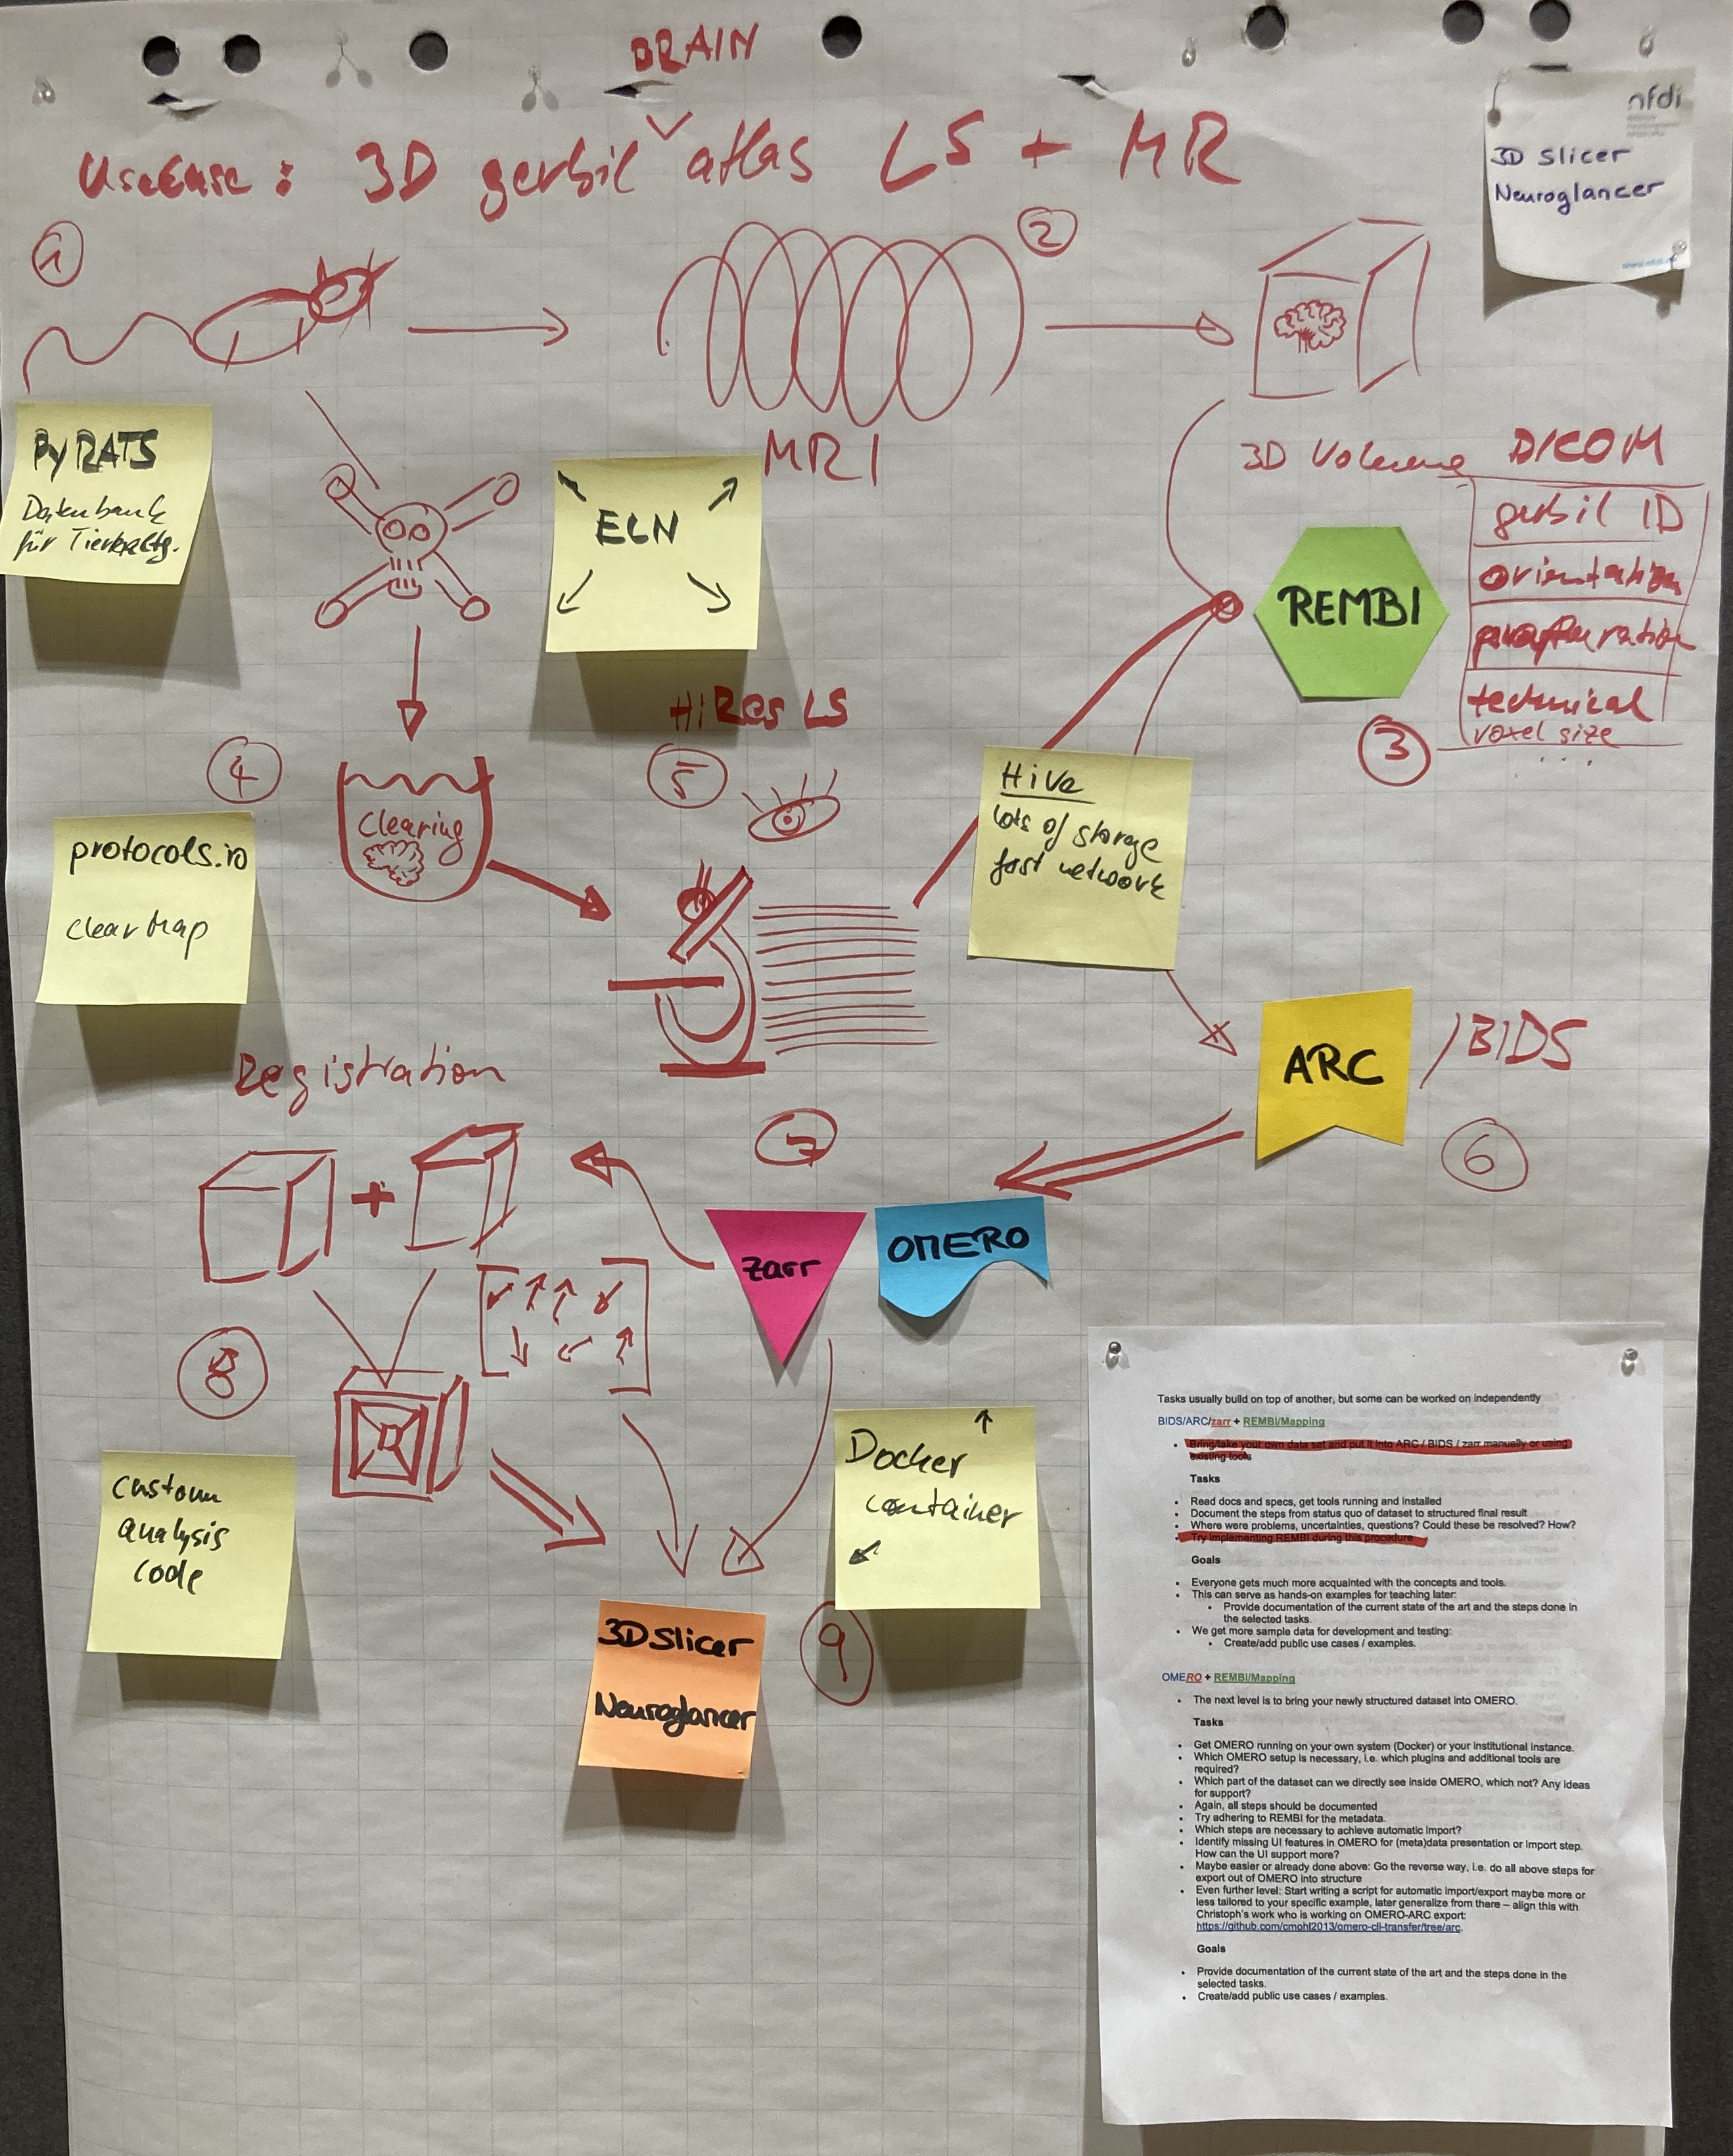 BRAIN
UseCase: 3D gerbil atlas LS + MR
nfdi
3D Slicer
Neuroglancer
1
2
PyRATS
Datenbank
für
MRI
ELN
3D Volume
DICOM
gerbil ID
orientation
technical
voxel size
...
REMBI
3
HiRes LS
4
5
Clearing
Hive
lots of storage
fast network
protocols.io
clearMap
Registration
ARC
/BIDS
6
7
+
zarr
OMERO
8
custom
analysis
code
Docker
container
9
3D Slicer
Neuroglancer
Tasks usually build on top of another, but some can be worked on independently
BIDS/ARC/zarr + REMBI/Mapping
• Bring/take your own data set and put it into ARC / BIDS / zarr manually or using
existing tools
Tasks
• Read docs and specs, get tools running and installed
• Document the steps from status quo of dataset to structured final result
• Where were problems, uncertainties, questions? Could these be resolved? How?
• Try implementing REMBI during this procedure
Goals
• Everyone gets much more acquainted with the concepts and tools.
• This can serve as hands-on examples for teaching later:
• Provide documentation of the current state of the art and the steps done in
the selected tasks.
• We get more sample data for development and testing:
• Create/add public use cases / examples.
OMERO + REMBI/Mapping
• The next level is to bring your newly structured dataset into OMERO.
Tasks
• Get OMERO running on your own system (Docker) or your institutional instance.
• Which OMERO setup is necessary, i.e. which plugins and additional tools are
required?
• Which part of the dataset can we directly see inside OMERO, which not? Any ideas
for support?
• Again, all steps should be documented
• Try adhering to REMBI for the metadata.
• Which steps are necessary to achieve automatic import?
• Identify missing UI features in OMERO for (meta)data presentation or import step.
How can the UI support more?
• Maybe easier or already done above: Go the reverse way, i.e. do all above steps for
export out of OMERO into structure
• Even further level: Start writing a script for automatic import/export maybe more or
less tailored to your specific example, later generalize from there – align this with
Christoph's work who is working on OMERO-ARC export:
https://github.com/cmohl2013/omero-cli-transfer/tree/arc.
Goals
• Provide documentation of the current state of the art and the steps done in the
selected tasks.
• Create/add public use cases / examples.